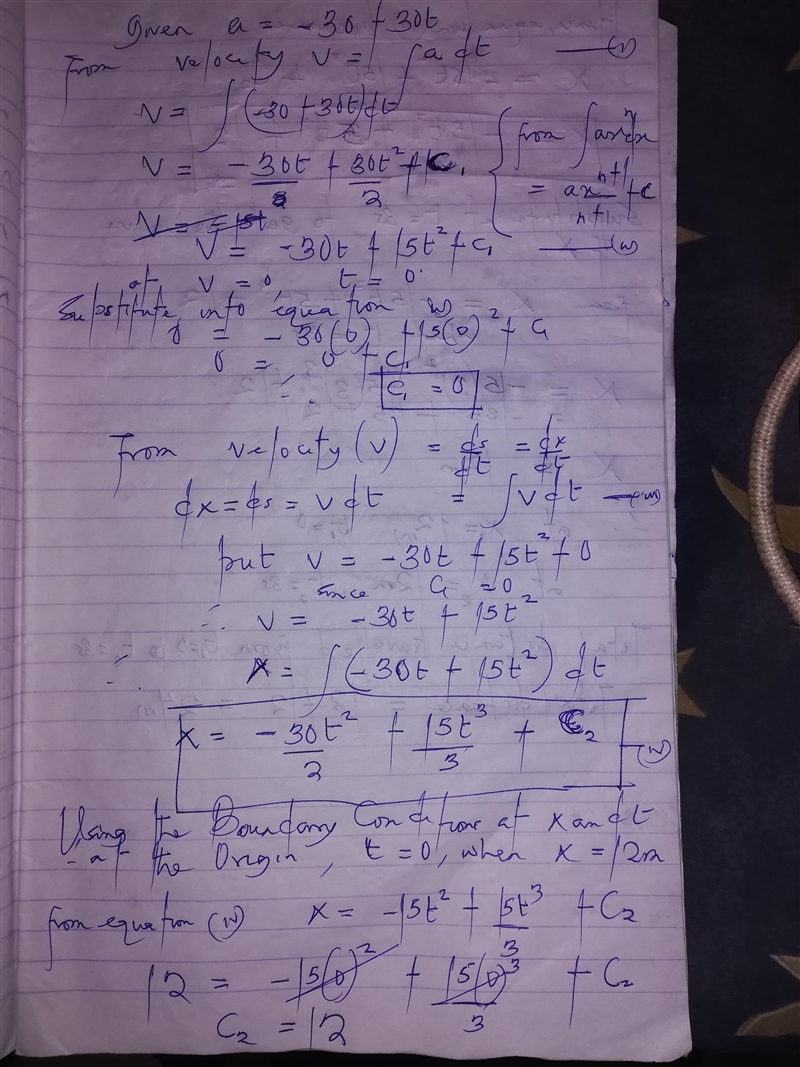 Given a = -30 + 30t
From velocity V = ∫ a dt —(i)
V = ∫ (-30 + 30t) dt
V = -30t + 30t²/2 + C₁ { from ∫ axⁿ dx = axⁿ⁺¹/n+1 + C
V = -15t
V = -30t + 15t² + C₁ —(ii)
at V = 0, t = 0
Substitute into equation (ii)
0 = -30(0) + 15(0)² + C₁
0 = 0 + C₁
∴ C₁ = 0
From velocity (V) = ds/dt = dx/dt
dx = ds = V dt = ∫ V dt —(iii)
put V = -30t + 15t² + 0
since C₁ = 0
∴ V = -30t + 15t²
∴ X = ∫ (-30t + 15t²) dt
X = -30t²/2 + 15t³/3 + C₂ —(iv)
Using the Boundary Conditions at x and t
-at the Origin, t = 0, when x = 12m
from equation (iv) X = -15t² + 15t³/3 + C₂
12 = -15(0)² + 15(0)³/3 + C₂
C₂ = 12